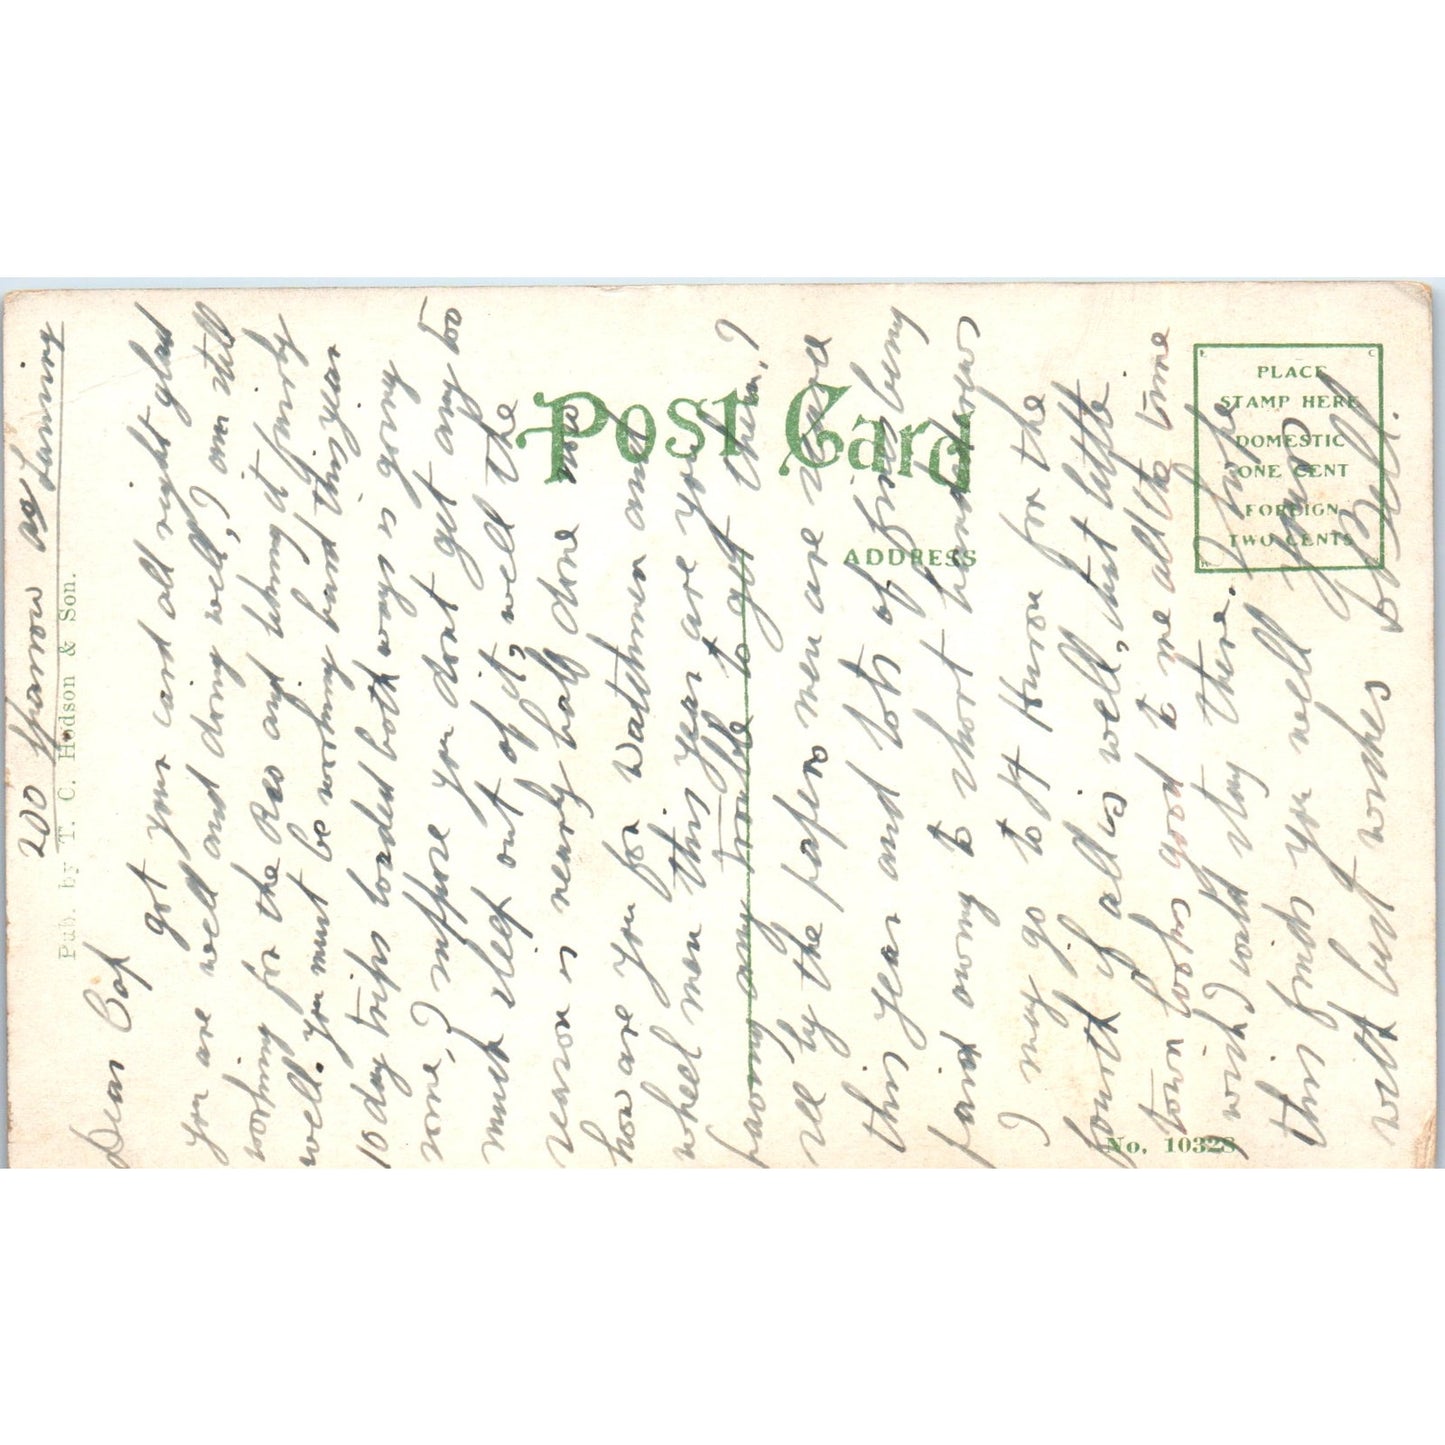 200 Sparrow av Lansing
Dear Cap
got your card all right glad
you are well and doing well, I am still
working for the Reo and taking it fairly
well. you must be working hard this year
10 day trips loaded both ways is going
some, I suppose you dont get any too
much sleep out of it, well the
season is nearly half done now
how are you for watchmen and
wheel men this year are you
having any trouble to get them, I
see by the papers men are scarce
this year and lots of fines being
paid owing to short handed crews
I may go to Pt Huron for the
fourth if all is well, but little
town looks good to me all the time
wish I could stay there. I hope
this finds you well yours
with best wishes Bill.
Post Card
ADDRESS
PLACE
STAMP HERE
DOMESTIC
ONE CENT
FOREIGN
TWO CENTS
Pub. by T. C. Hodson & Son.
No. 10328